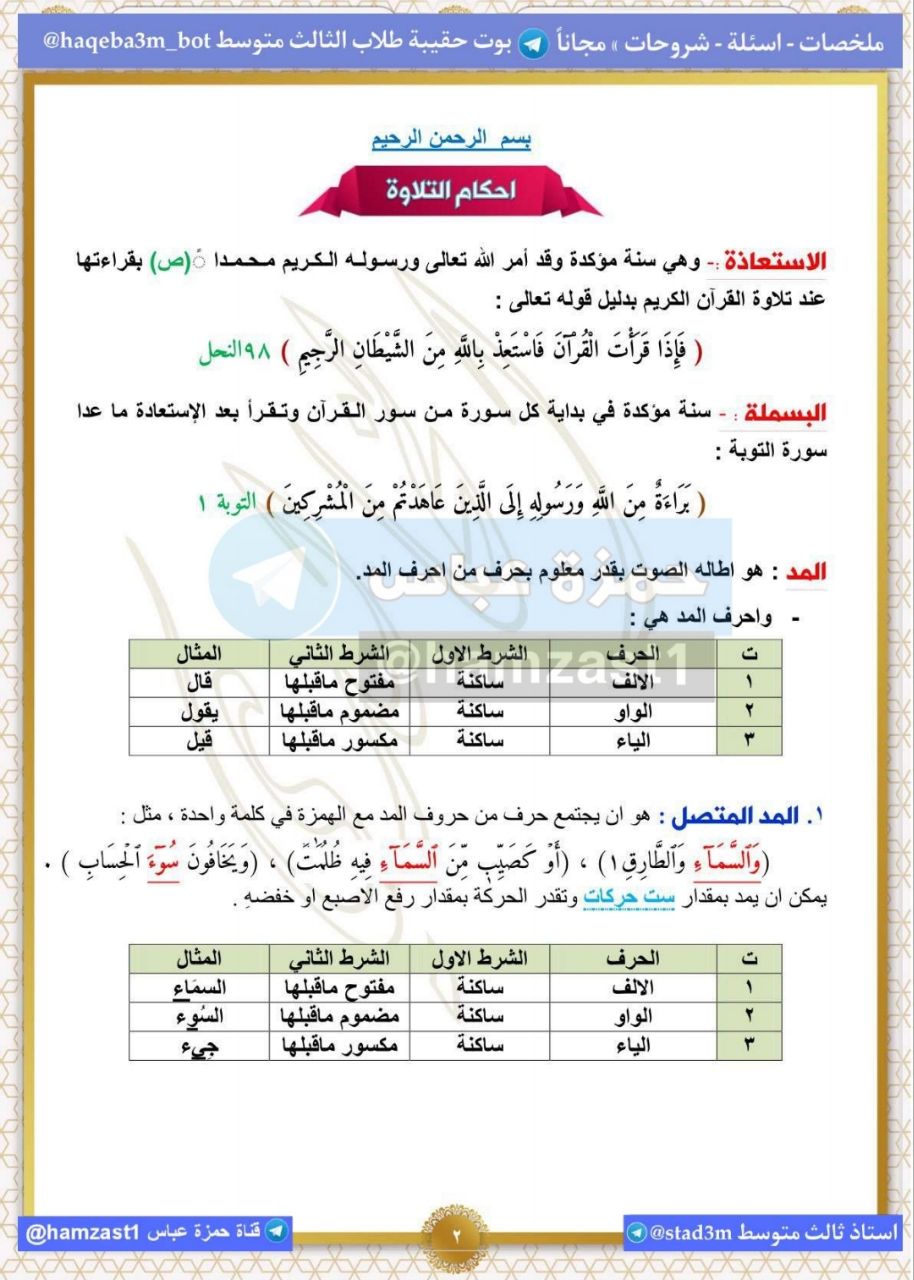 ملخصات - اسئلة - شروحات » مجاناً بوت حقيبة طلاب الثالث متوسط @haqeba3m_bot
بسم الرحمن الرحيم
احكام التلاوة
الاستعاذة :- وهي سنة مؤكدة وقد أمر الله تعالى ورسوله الكريم محمدا ً(ص) بقراءتها
عند تلاوة القرآن الكريم بدليل قوله تعالى :
( فَإِذَا قَرَأْتَ الْقُرْآنَ فَاسْتَعِذْ بِاللَّهِ مِنَ الشَّيْطَانِ الرَّجِيمِ ) ٩٨النحل
البسملة : - سنة مؤكدة في بداية كل سورة من سور القرآن وتقرأ بعد الإستعادة ما عدا
سورة التوبة :
( بَرَاءَةٌ مِنَ اللَّهِ وَرَسُولِهِ إِلَى الَّذِينَ عَاهَدْتُمْ مِنَ الْمُشْرِكِينَ ) التوبة ١
المد : هو اطاله الصوت بقدر معلوم بحرف من احرف المد.
حمزة عباس
- واحرف المد هي :
@hamzast1
ت الحرف الشرط الاول الشرط الثاني المثال
١ الالف ساكنة مفتوح ماقبلها قال
٢ الواو ساكنة مضموم ماقبلها يقول
٣ الياء ساكنة مكسور ماقبلها قيل
١. المد المتصل : هو ان يجتمع حرف من حروف المد مع الهمزة في كلمة واحدة ، مثل :
(وَٱلسَّمَآءِ وَٱلطَّارِقِ١) ، (أَوۡ كَصَيِّبٖ مِّنَ ٱلسَّمَآءِ فِيهِ ظُلُمَٰتٞ) ، (وَيَخَافُونَ سُوٓءَ ٱلۡحِسَابِ ) .
يمكن ان يمد بمقدار ست حركات وتقدر الحركة بمقدار رفع الاصبع او خفضهِ .
ت الحرف الشرط الاول الشرط الثاني المثال
١ الالف ساكنة مفتوح ماقبلها السمَاءِ
٢ الواو ساكنة مضموم ماقبلها السُوء
٣ الياء ساكنة مكسور ماقبلها جِيء
استاذ ثالث متوسط @stad3m
٢
قناة حمزة عباس @hamzast1